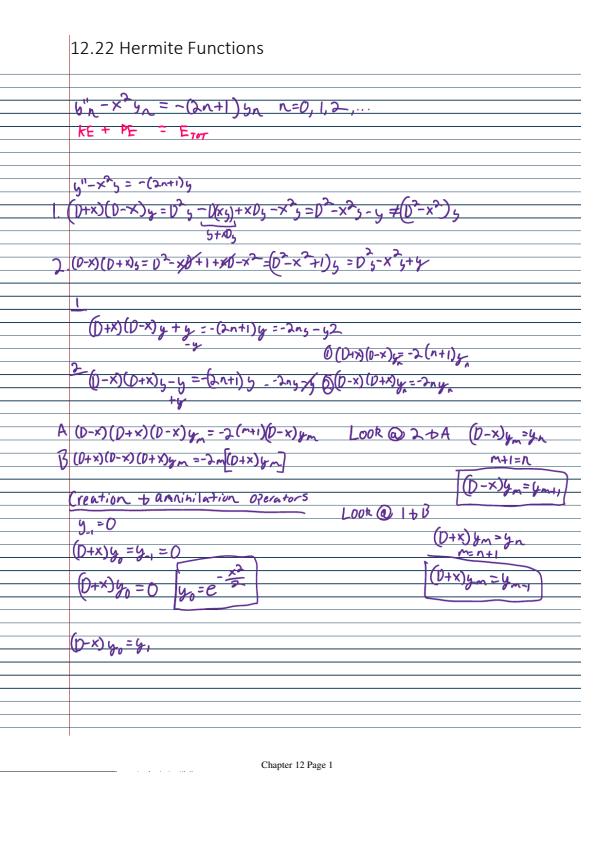 12.22 Hermite Functions
y''ₙ - x²yₙ = -(2n+1)yₙ n=0,1,2,...
KE + PE = E_TOT
y'' - x²y = -(2n+1)y
1. (D+x)(D-x)y = D²y - D(xy) + xDy - x²y = D² - x²y - y ≠ (D²-x²)y
y+xDy
2. (D-x)(D+x)y = D² - xD + 1 + xD - x² = (D² - x² + 1)y = D²y - x²y + y
1
(D+x)(D-x)y + y = -(2n+1)y = -2ny - y2
-y
① (D+x)(D-x)yₙ = -2(n+1)yₙ
2 (D-x)(D+x)y - y = -(2n+1)y = -2ny - y ② (D-x)(D+x)yₙ = -2nyₙ
+y
A (D-x)(D+x)(D-x)yₘ = -2(m+1)(D-x)yₘ LOOK @ 2 + A (D-x)yₘ = yₙ
B (D+x)(D-x)(D+x)yₘ = -2m[(D+x)yₘ] m+1=n
(D-x)yₘ = yₘ₊₁
Creation + annihilation operators
LOOK @ 1 + B
y₋₁ = 0
(D+x)yₘ = yₙ
(D+x)y₀ = y₋₁ = 0
m=n+1
(D+x)y₀ = 0 y₀ = e^(-x²/2) (D+x)yₘ = yₘ₋₁
(D-x)y₀ = y₁
Chapter 12 Page 1